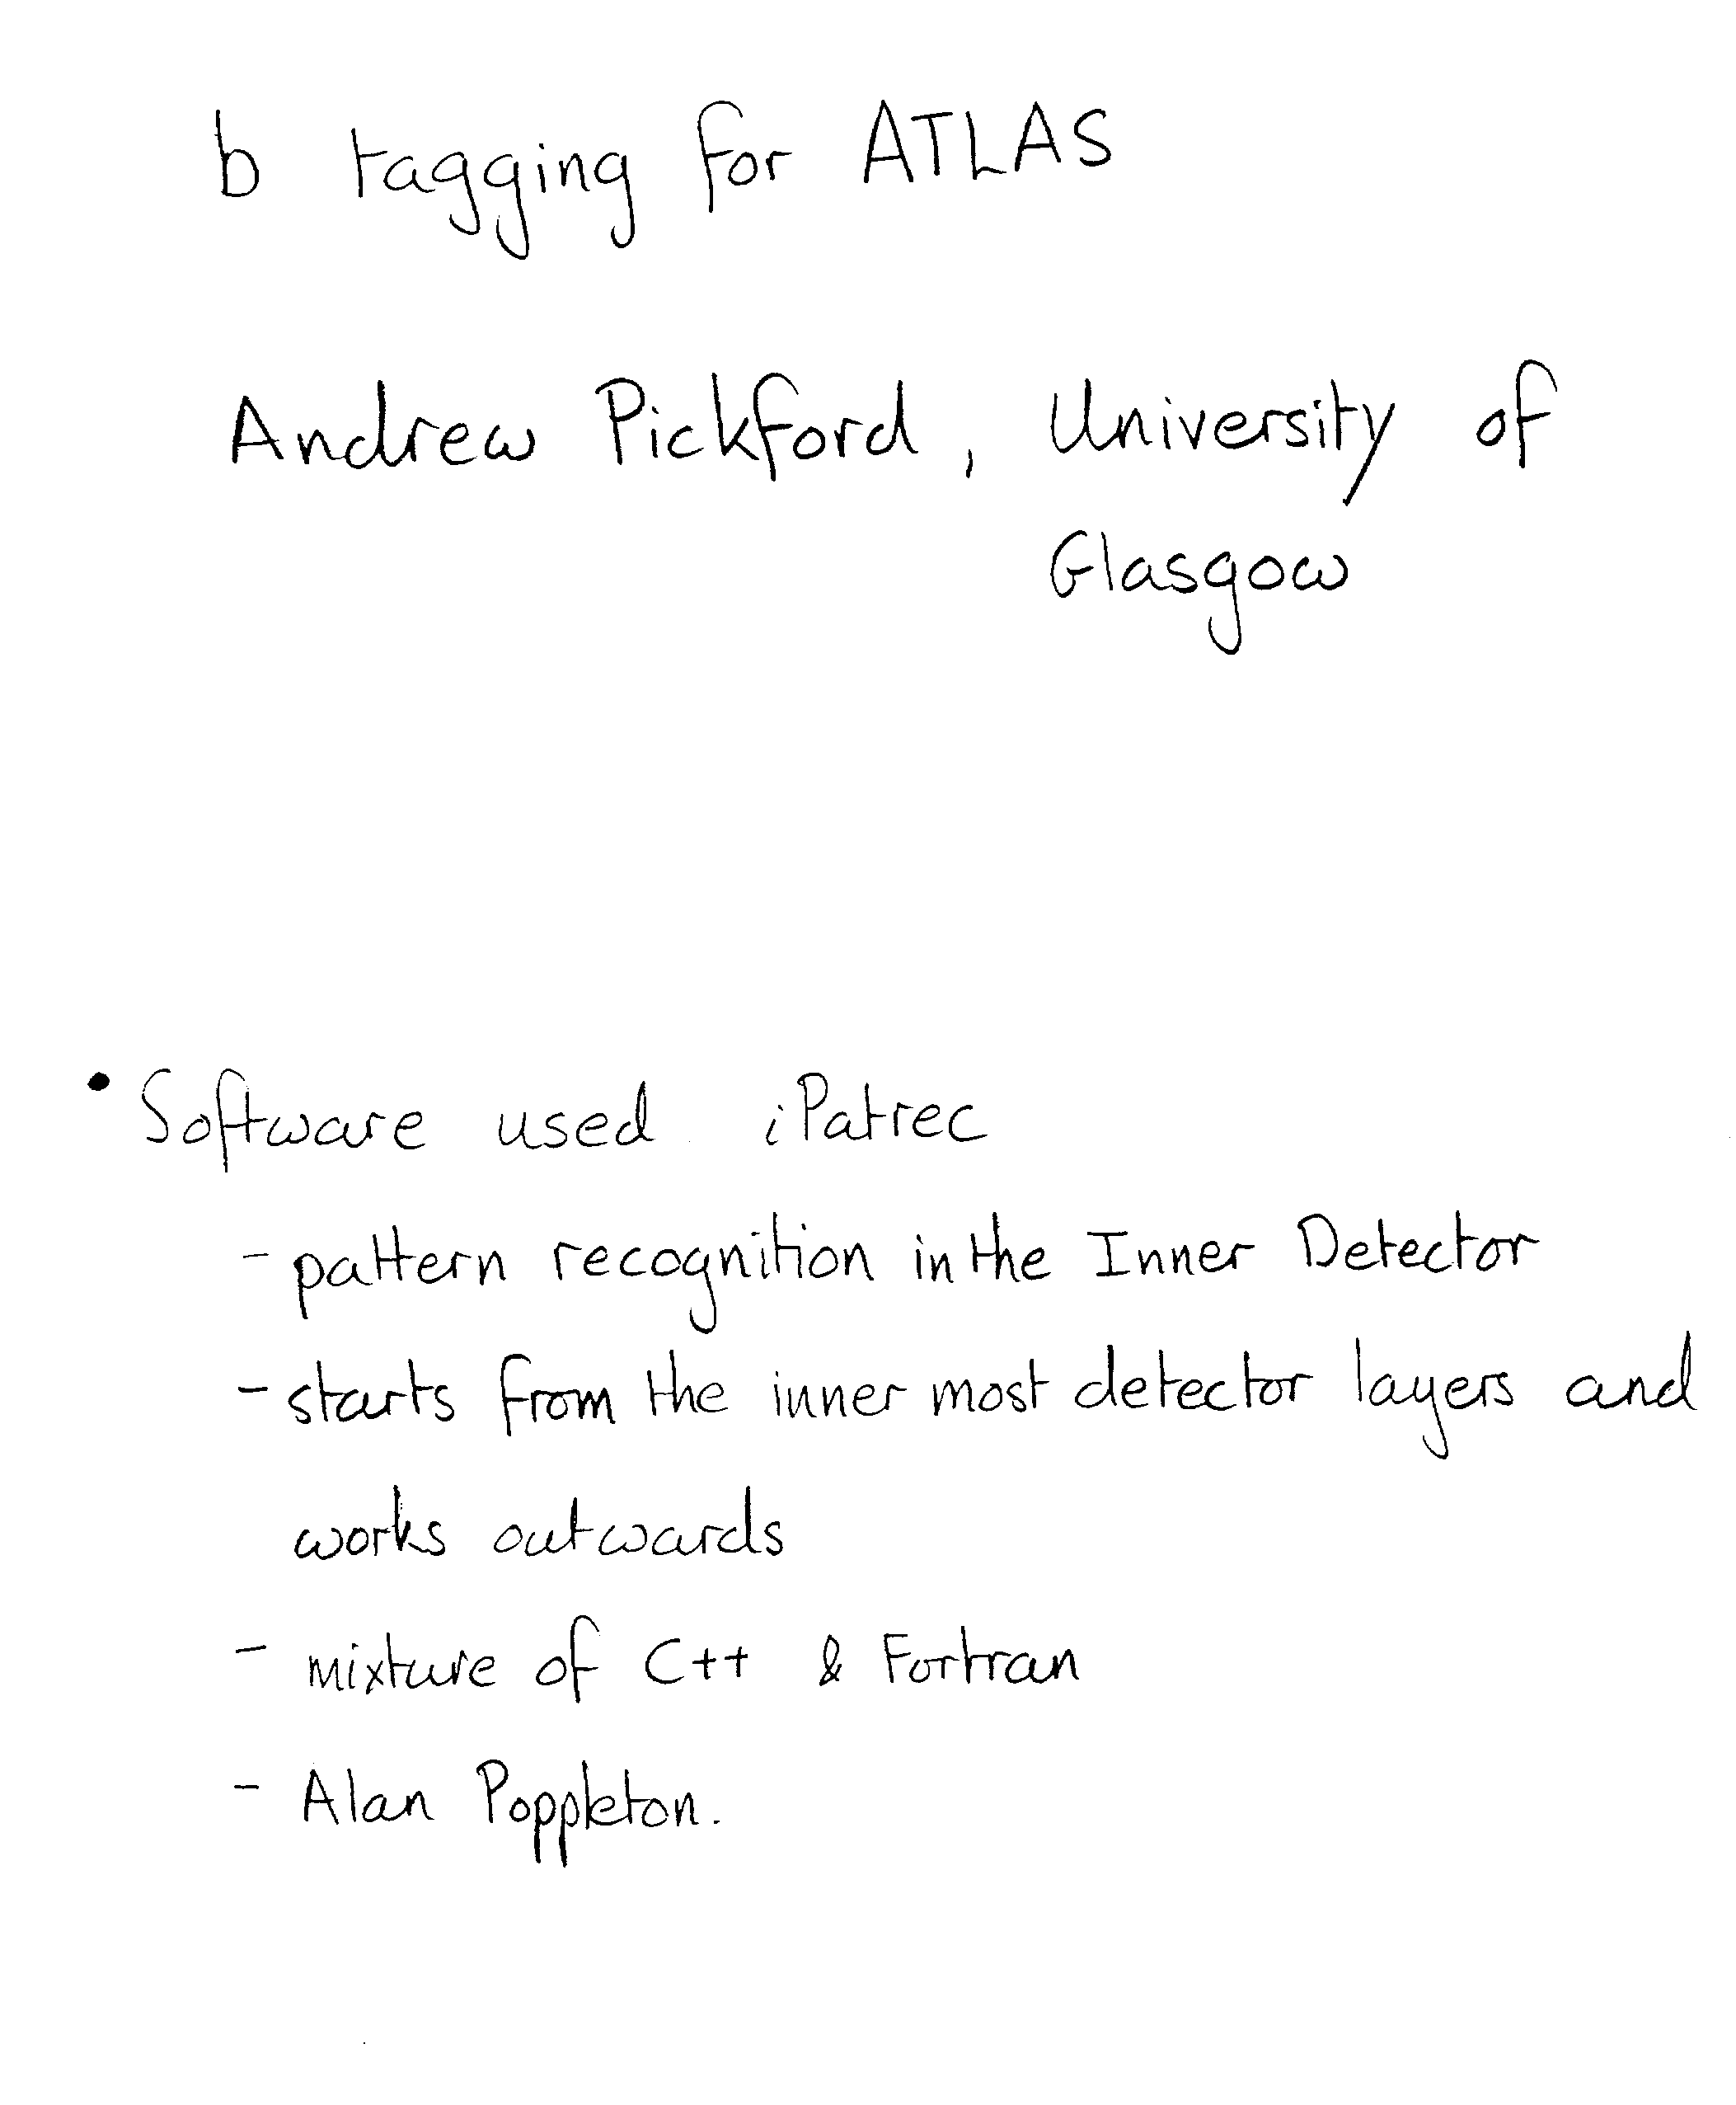 b tagging for ATLAS
Andrew Pickford, University of
Glasgow
• Software used iPatrec
- pattern recognition in the Inner Detector
- starts from the inner most detector layers and
works outwards
- mixture of C++ & Fortran
- Alan Poppleton.